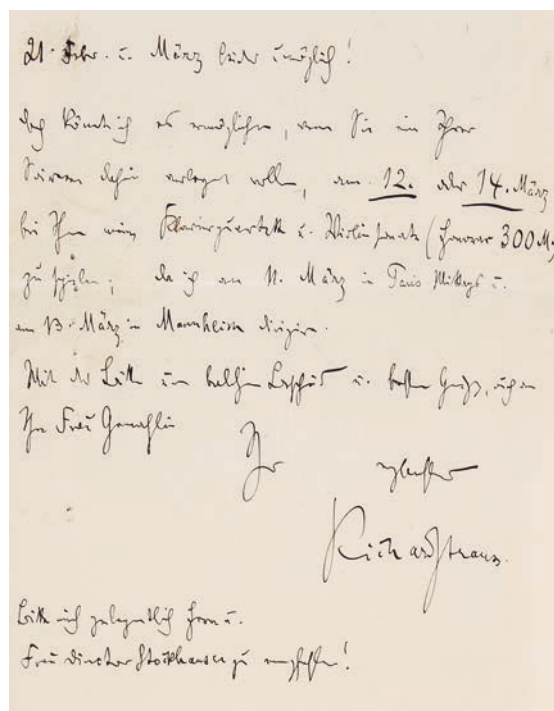 21. Febr. u. März leider unmöglich!
doch könnte ich es ermöglichen, wenn Sie eine Ihrer
Soireen dahin verlegen wollen, am 12. oder 14. März
bei Ihnen mein Klavierquartett u. Violinsonate (Honorar 300 M.)
zu spielen; da ich am 11. März in Paris Mittags u.
am 13. März in Mannheim dirigire.
Mit der Bitte um baldigen Bescheid u. besten Grüßen, auch an
Ihre Frau Gemahlin
Ihr ergebenster
Richard Strauss.
Bitte mich gelegentlich Herrn u.
Frau Director Stockhausen zu empfehlen!